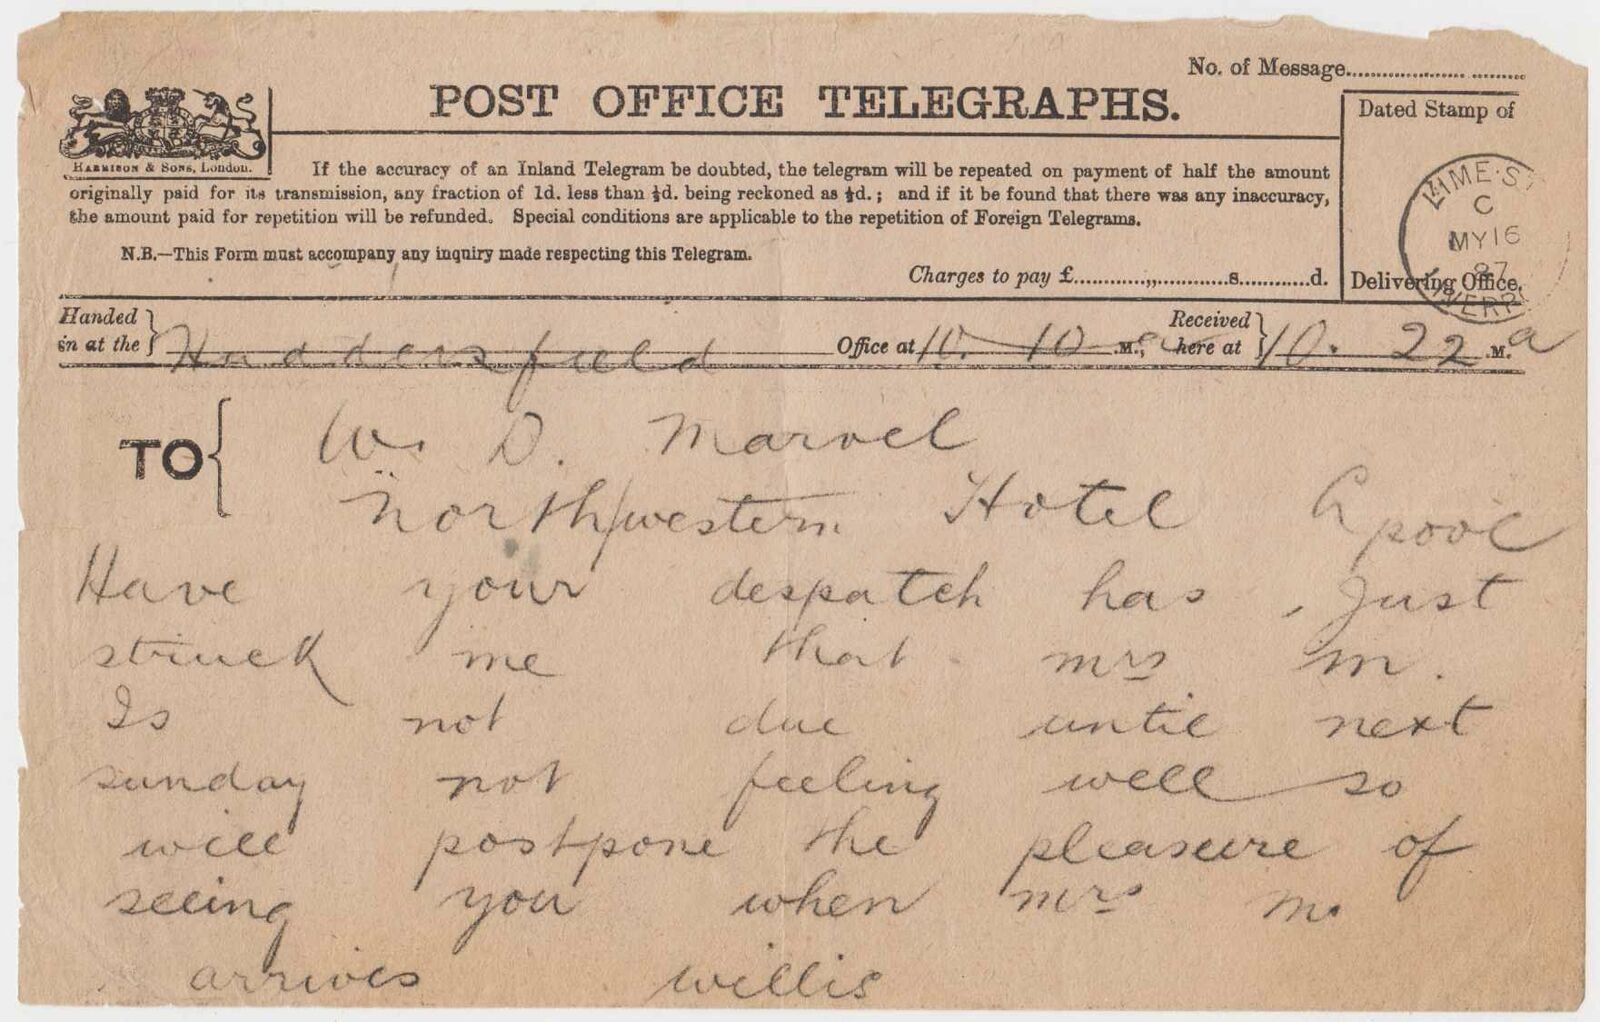 No. of Message
POST OFFICE TELEGRAPHS.
Dated Stamp of
HARRISON & SONS, LONDON.
If the accuracy of an Inland Telegram be doubted, the telegram will be repeated on payment of half the amount
originally paid for its transmission, any fraction of 1d. less than ½d. being reckoned as ½d.; and if it be found that there was any inaccuracy,
the amount paid for repetition will be refunded. Special conditions are applicable to the repetition of Foreign Telegrams.
N.B.—This Form must accompany any inquiry made respecting this Telegram.
Charges to pay £ s d.
Delivering Office.
LIME.ST
C
MY 16
87
Handed in at the Huddersfield Office at 10.10 M. a Received here at 10.22 M. a
TO W. D. Marvel
Northwestern Hotel Lpool
Have your despatch has Just
struck me that mrs m.
Is not due until next
sunday not feeling well so
will postpone the pleasure of
seeing you when mrs m.
arrives willis